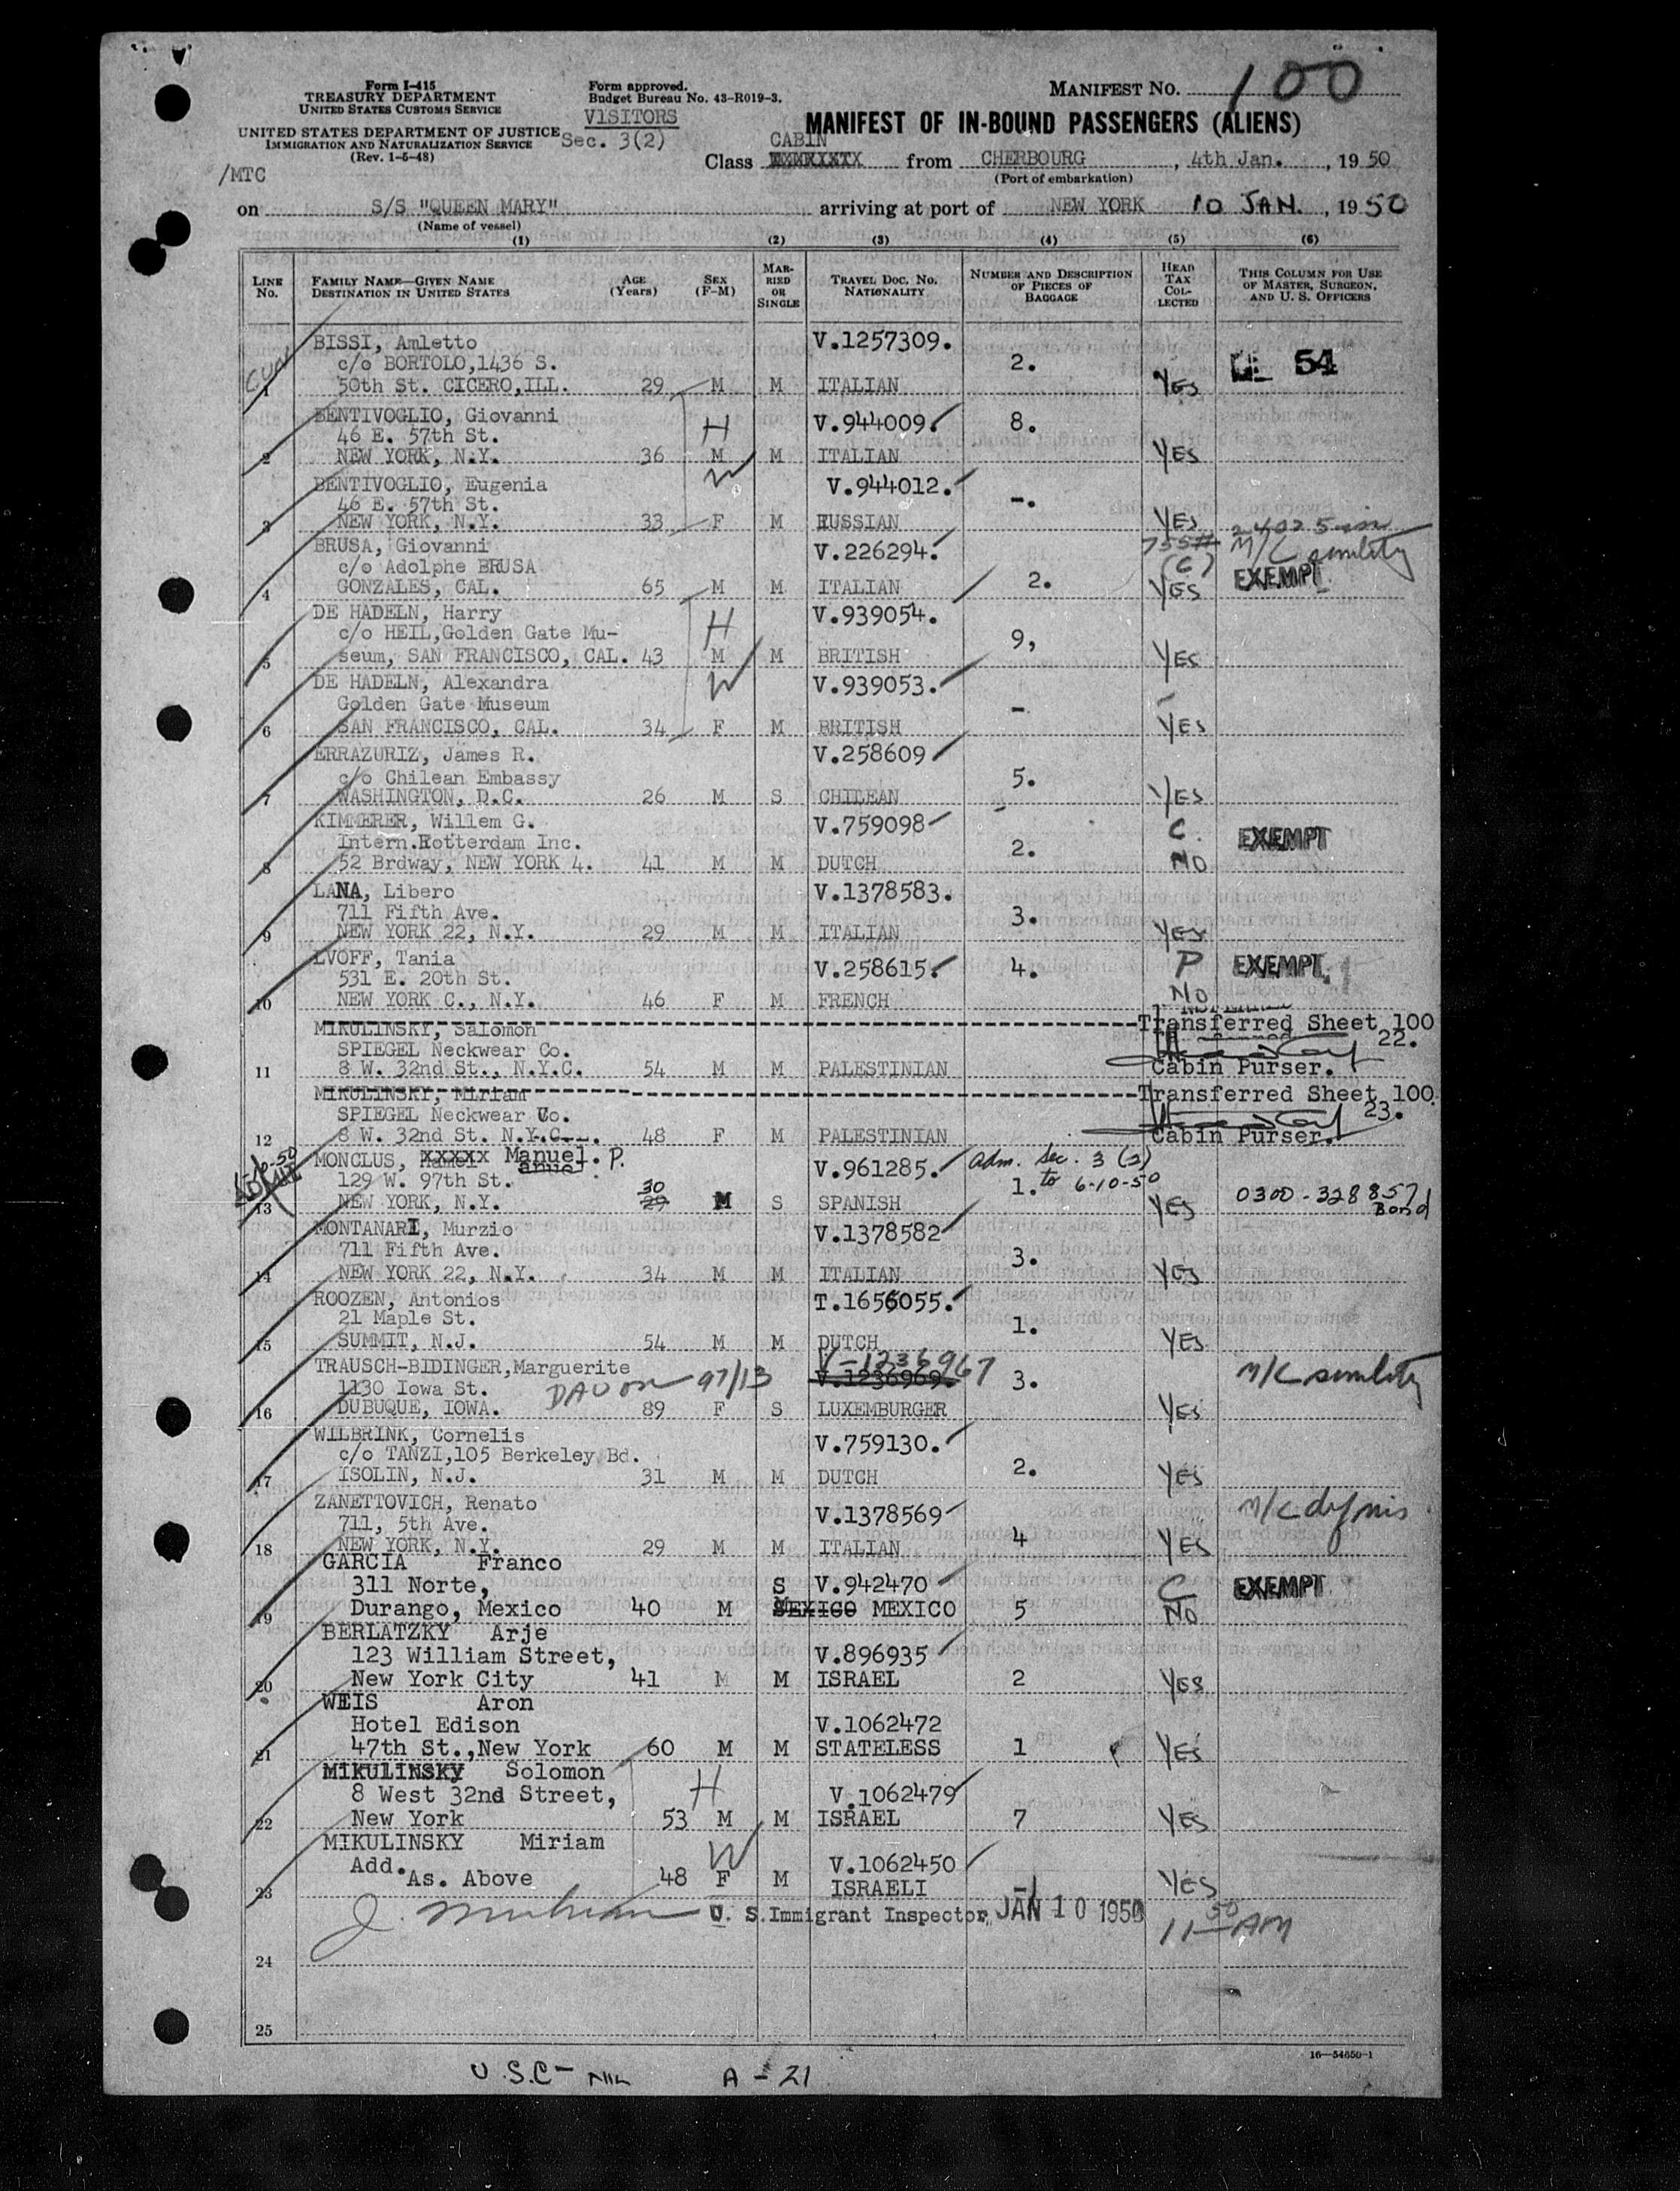 Form I-415
TREASURY DEPARTMENT
UNITED STATES CUSTOMS SERVICE
UNITED STATES DEPARTMENT OF JUSTICE
IMMIGRATION AND NATURALIZATION SERVICE
(Rev. 1-5-48)
/MTC
Form approved.
Budget Bureau No. 43-R019-3.
VISITORS
Sec. 3(2)
MANIFEST NO. 100
MANIFEST OF IN-BOUND PASSENGERS (ALIENS)
CABIN
Class from CHERBOURG, 4th Jan., 1950
(Port of embarkation)
on S/S "QUEEN MARY" arriving at port of NEW YORK 10 JAN., 1950
(Name of vessel)
(1) (2) (3) (4) (5) (6)
LINE No. FAMILY NAME—GIVEN NAME DESTINATION IN UNITED STATES AGE (Years) SEX (F-M) MARRIED OR SINGLE TRAVEL DOC. NO. NATIONALITY NUMBER AND DESCRIPTION OF PIECES OF BAGGAGE HEAD TAX COLLECTED THIS COLUMN FOR USE OF MASTER, SURGEON, AND U. S. OFFICERS
BISSI, Amletto V.1257309.
c/o BORTOLO,1436 S. 2. 54
1 50th St. CICERO,ILL. 29 M M ITALIAN YES
BENTIVOGLIO, Giovanni V.944009. 8.
46 E. 57th St. H
2 NEW YORK, N.Y. 36 M M ITALIAN YES
BENTIVOGLIO, Eugenia W V.944012.
46 E. 57th St. -.
3 NEW YORK, N.Y. 33 F M RUSSIAN YES
BRUSA, Giovanni V.226294. M/C senility
c/o Adolphe BRUSA (C) EXEMPT
4 GONZALES, CAL. 65 M M ITALIAN 2. YES
DE HADELN, Harry H V.939054.
c/o HEIL,Golden Gate Mu- 9,
5 seum, SAN FRANCISCO, CAL. 43 M M BRITISH YES
DE HADELN, Alexandra W V.939053.
Golden Gate Museum -
6 SAN FRANCISCO, CAL. 34 F M BRITISH YES
ERRAZURIZ, James R. V.258609
c/o Chilean Embassy 5.
7 WASHINGTON, D.C. 26 M S CHILEAN YES
KIMMERER, Willem G. V.759098 C.
Intern.Rotterdam Inc. 2. EXEMPT
8 52 Brdway, NEW YORK 4. 41 M M DUTCH NO
LANA, Libero V.1378583.
711 Fifth Ave. 3.
9 NEW YORK 22, N.Y. 29 M M ITALIAN YES
LVOFF, Tania V.258615. 4. P EXEMPT
531 E. 20th St.
10 NEW YORK C., N.Y. 46 F M FRENCH NO
MIKULINSKY, Salomon Transferred Sheet 100
SPIEGEL Neckwear Co. 22.
11 8 W. 32nd St., N.Y.C. 54 M M PALESTINIAN Cabin Purser.
MIKULINSKY, Miriam Transferred Sheet 100
SPIEGEL Neckwear Co. 23.
12 8 W. 32nd St. N.Y.C. 48 F M PALESTINIAN Cabin Purser.
MONCLUS, Manuel. P. V.961285. adm. Sec. 3 (2)
129 W. 97th St. 30 1. to 6-10-50
13 NEW YORK, N.Y. 29 M S SPANISH YES 0300-328857 Bond
MONTANARI, Murzio V.1378582
711 Fifth Ave. 3.
14 NEW YORK 22, N.Y. 34 M M ITALIAN YES
ROOZEN, Antonios T.1656055.
21 Maple St. 1.
15 SUMMIT, N.J. 54 M M DUTCH YES
TRAUSCH-BIDINGER,Marguerite V-1236967
1130 Iowa St. V.1236969. 3. M/C senility
16 DUBUQUE, IOWA. 89 F S LUXEMBURGER YES
WILBRINK, Cornelis V.759130.
c/o TANZI,105 Berkeley Bd. 2.
17 ISOLIN, N.J. 31 M M DUTCH YES
ZANETTOVICH, Renato V.1378569 M/C
711, 5th Ave. 4
18 NEW YORK, N.Y. 29 M M ITALIAN YES
GARCIA Franco
311 Norte, S V.942470 C EXEMPT
19 Durango, Mexico 40 M MEXICO MEXICO 5 NO
BERLATZKY Arje
123 William Street, V.896935
20 New York City 41 M M ISRAEL 2 YES
WEIS Aron
Hotel Edison V.1062472
21 47th St.,New York 60 M M STATELESS 1 YES
MIKULINSKY Solomon H
8 West 32nd Street, V.1062479
22 New York 53 M M ISRAEL 7 YES
MIKULINSKY Miriam W
Add. V.1062450
23 As. Above 48 F M ISRAELI YES
U. S. Immigrant Inspector, JAN 10 1950 11 50 AM
24
25
16—54650-1
U.S.C- A-21